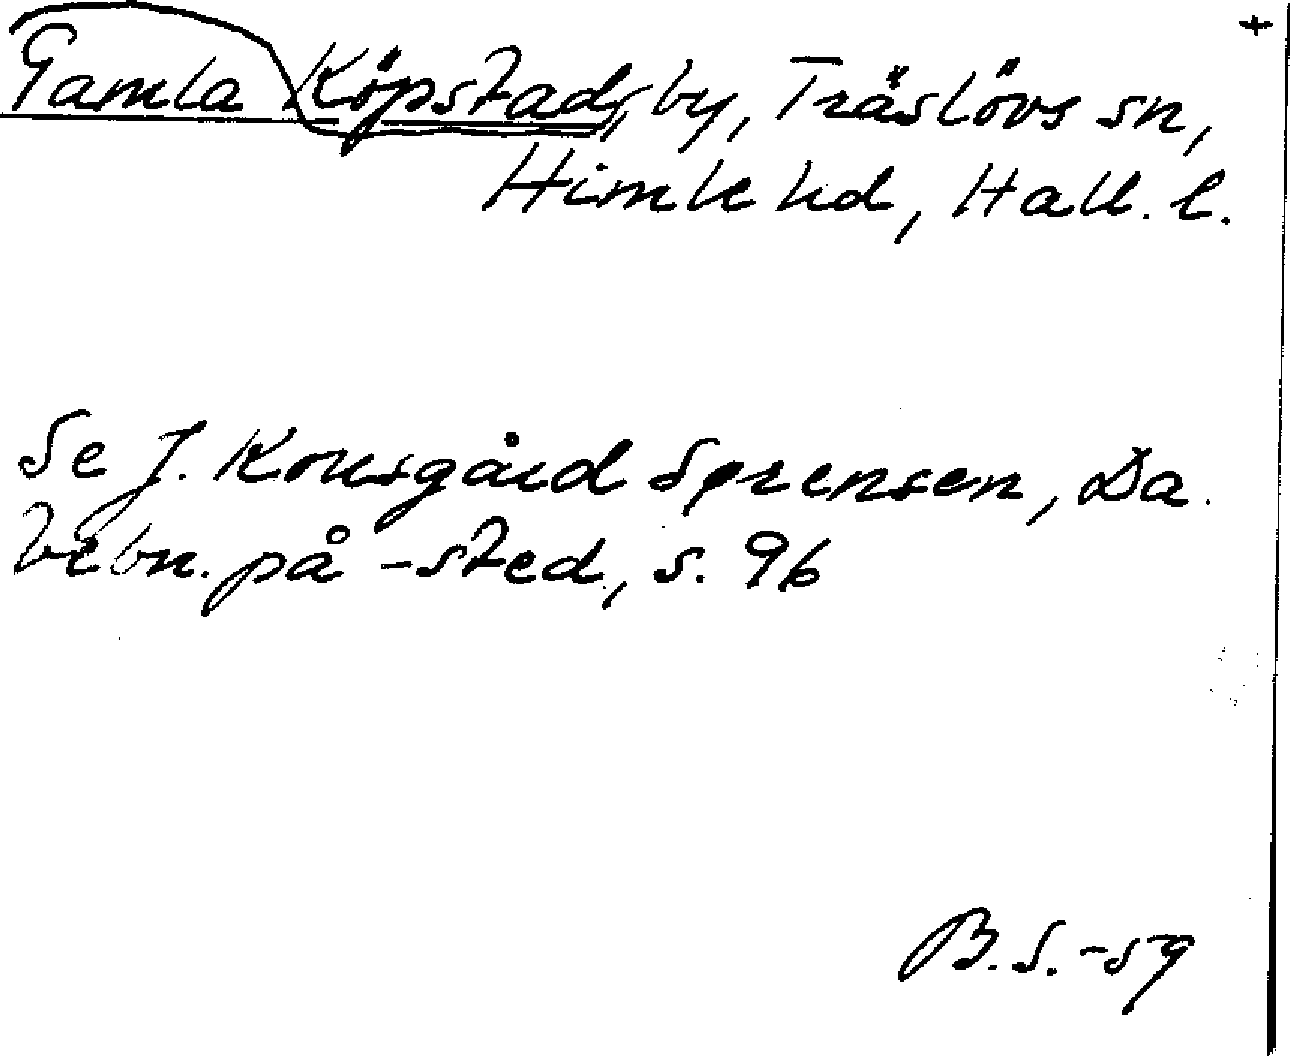 +
Gamla Köpstad, by, Träslövs sn,
Himle hd, Hall. l.
Se J. Kousgård Sørensen, Da.
bebn. på -sted, s. 96
B.S. -59